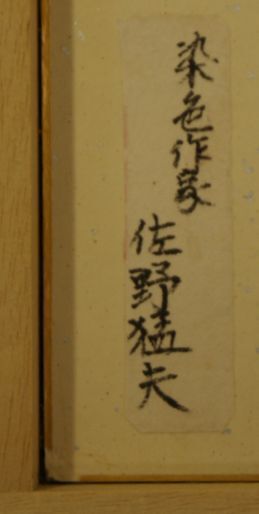 染色作家
佐野猛夫